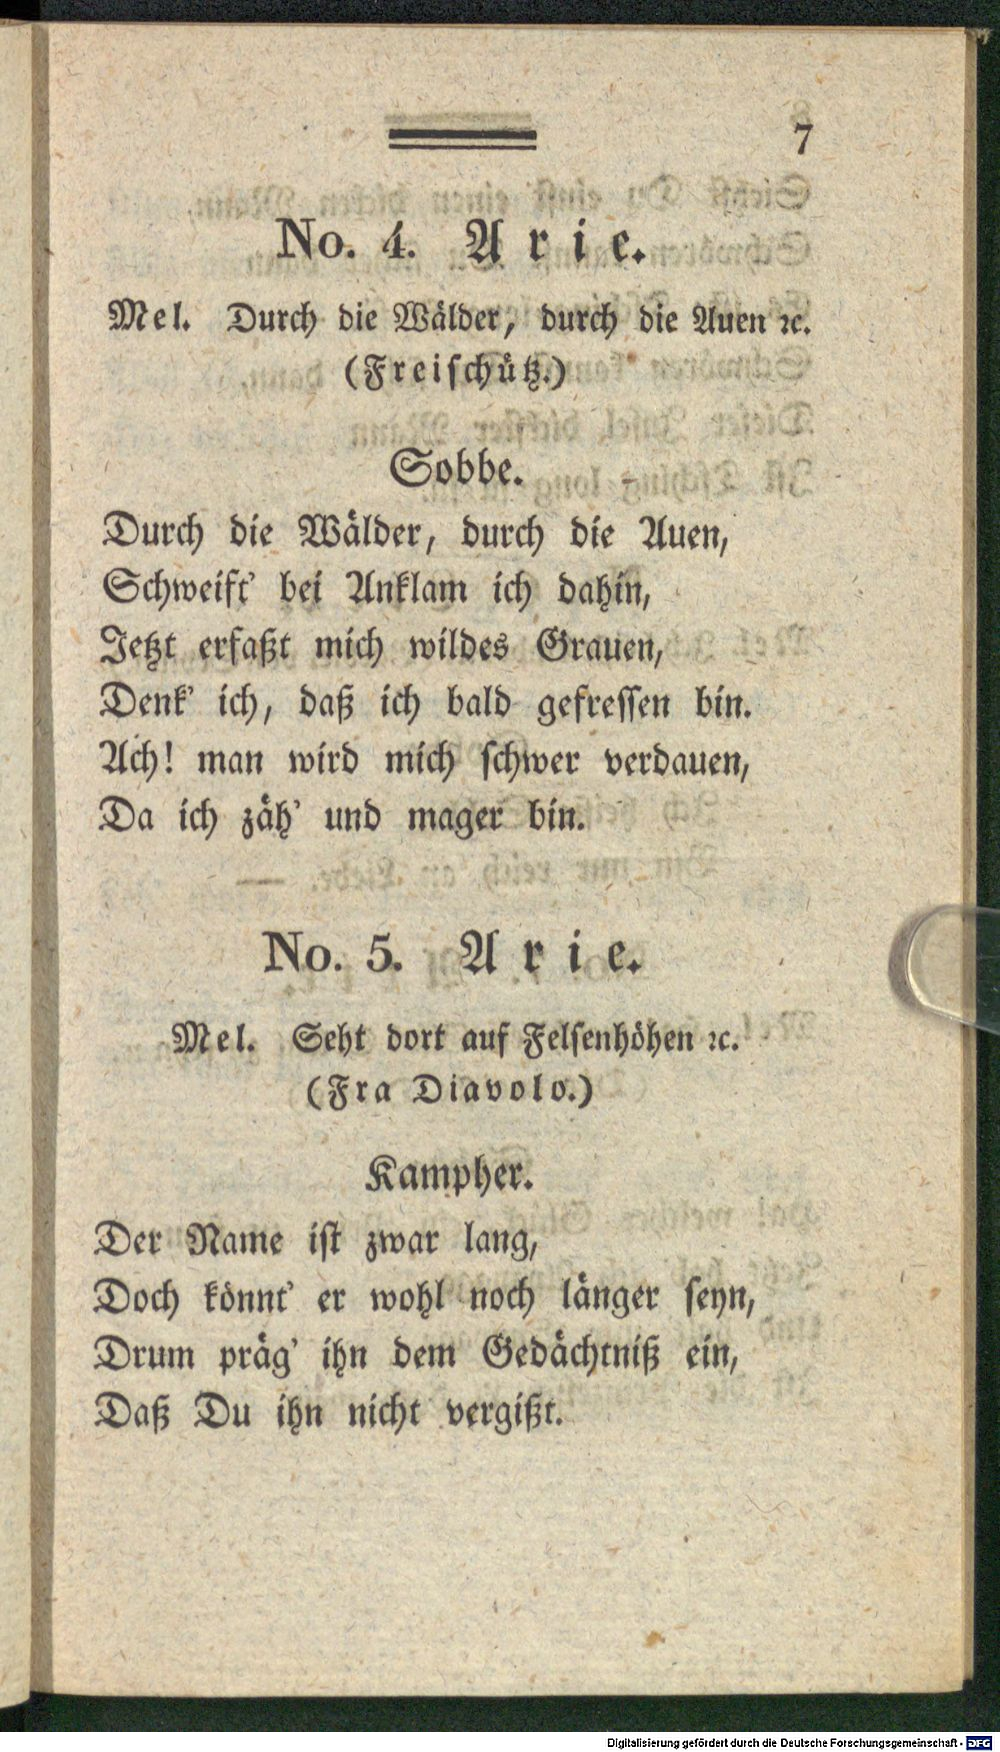 7
No. 4. Arie.
Mel. Durch die Wälder, durch die Auen ꝛc.
(Freischütz.)
Sobbe.
Durch die Wälder, durch die Auen,
Schweift' bei Anklam ich dahin,
Jetzt erfaßt mich wildes Grauen,
Denk' ich, daß ich bald gefressen bin.
Ach! man wird mich schwer verdauen,
Da ich zäh' und mager bin.
No. 5. Arie.
Mel. Seht dort auf Felsenhöhen ꝛc.
(Fra Diavolo.)
Kampher.
Der Name ist zwar lang,
Doch könnt' er wohl noch länger seyn,
Drum präg' ihn dem Gedächtniß ein,
Daß Du ihn nicht vergißt.
Digitalisierung gefördert durch die Deutsche Forschungsgemeinschaft - DFG